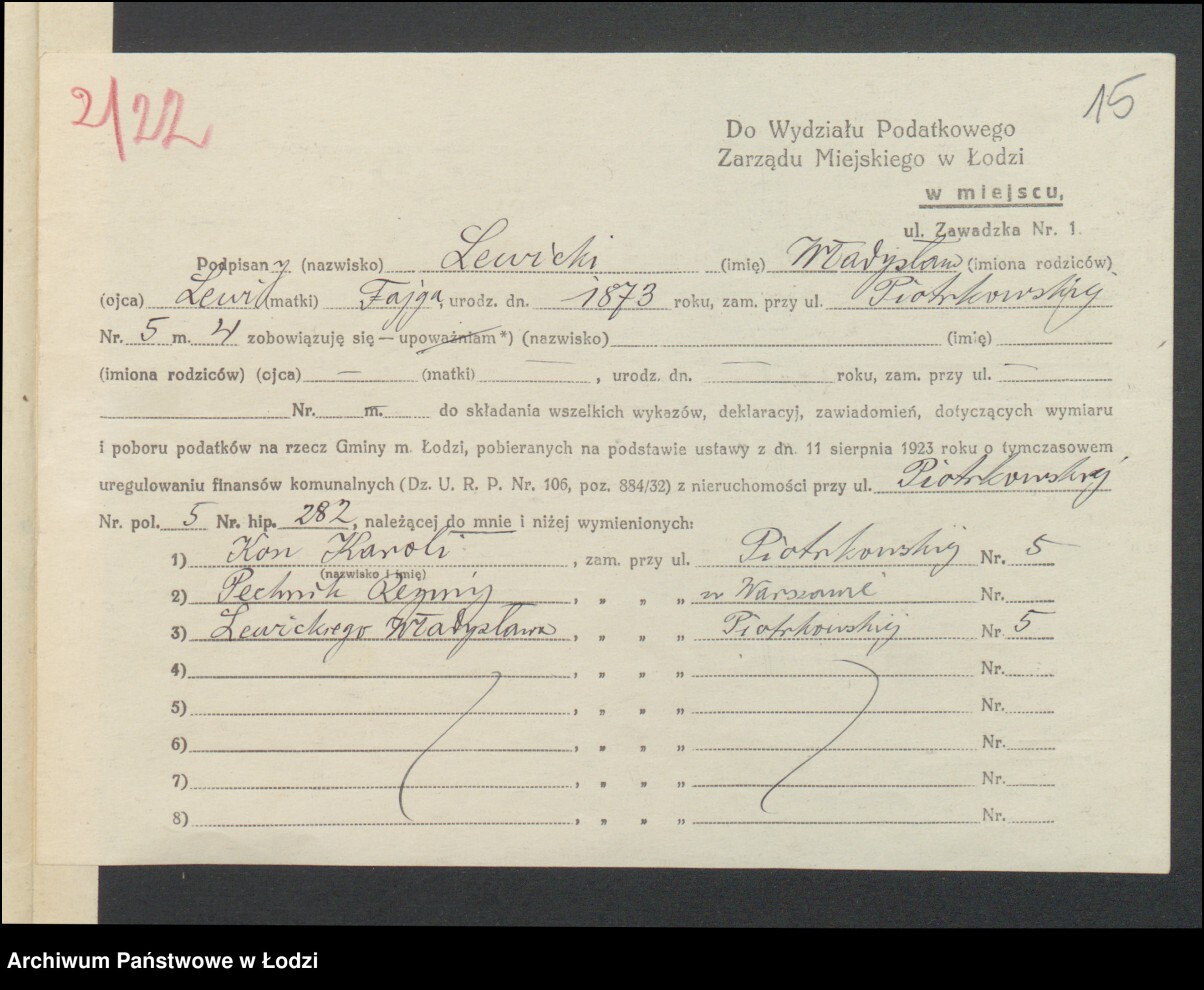 2/22
15
Do Wydziału Podatkowego
Zarządu Miejskiego w Łodzi
w miejscu,
ul. Zawadzka Nr. 1.
Podpisany (nazwisko) Lewicki (imię) Władysław (imiona rodziców)
(ojca) Lewi (matki) Fajga, urodz. dn. 1873 roku, zam. przy ul. Piotrkowskiej
Nr. 5 m. 4 zobowiązuję się — upoważniam *) (nazwisko) (imię)
(imiona rodziców) (ojca) — (matki) — , urodz. dn. — roku, zam. przy ul. —
Nr. m. do składania wszelkich wykazów, deklaracyj, zawiadomień, dotyczących wymiaru
i poboru podatków na rzecz Gminy m. Łodzi, pobieranych na podstawie ustawy z dn. 11 sierpnia 1923 roku o tymczasowem
uregulowaniu finansów komunalnych (Dz. U. R. P. Nr. 106, poz. 884/32) z nieruchomości przy ul. Piotrkowskiej
Nr. pol. 5 Nr. hip. 282, należącej do mnie i niżej wymienionych:
1) Kon Karoli , zam. przy ul. Piotrkowskiej Nr. 5
(nazwisko i imię)
2) Pechnik Reginy , „ „ „ w Warszawie Nr.
3) Lewickiego Władysława , „ „ „ Piotrkowskiej Nr. 5
4) , „ „ „ Nr.
5) , „ „ „ Nr.
6) , „ „ „ Nr.
7) , „ „ „ Nr.
8) , „ „ „ Nr.
Archiwum Państwowe w Łodzi